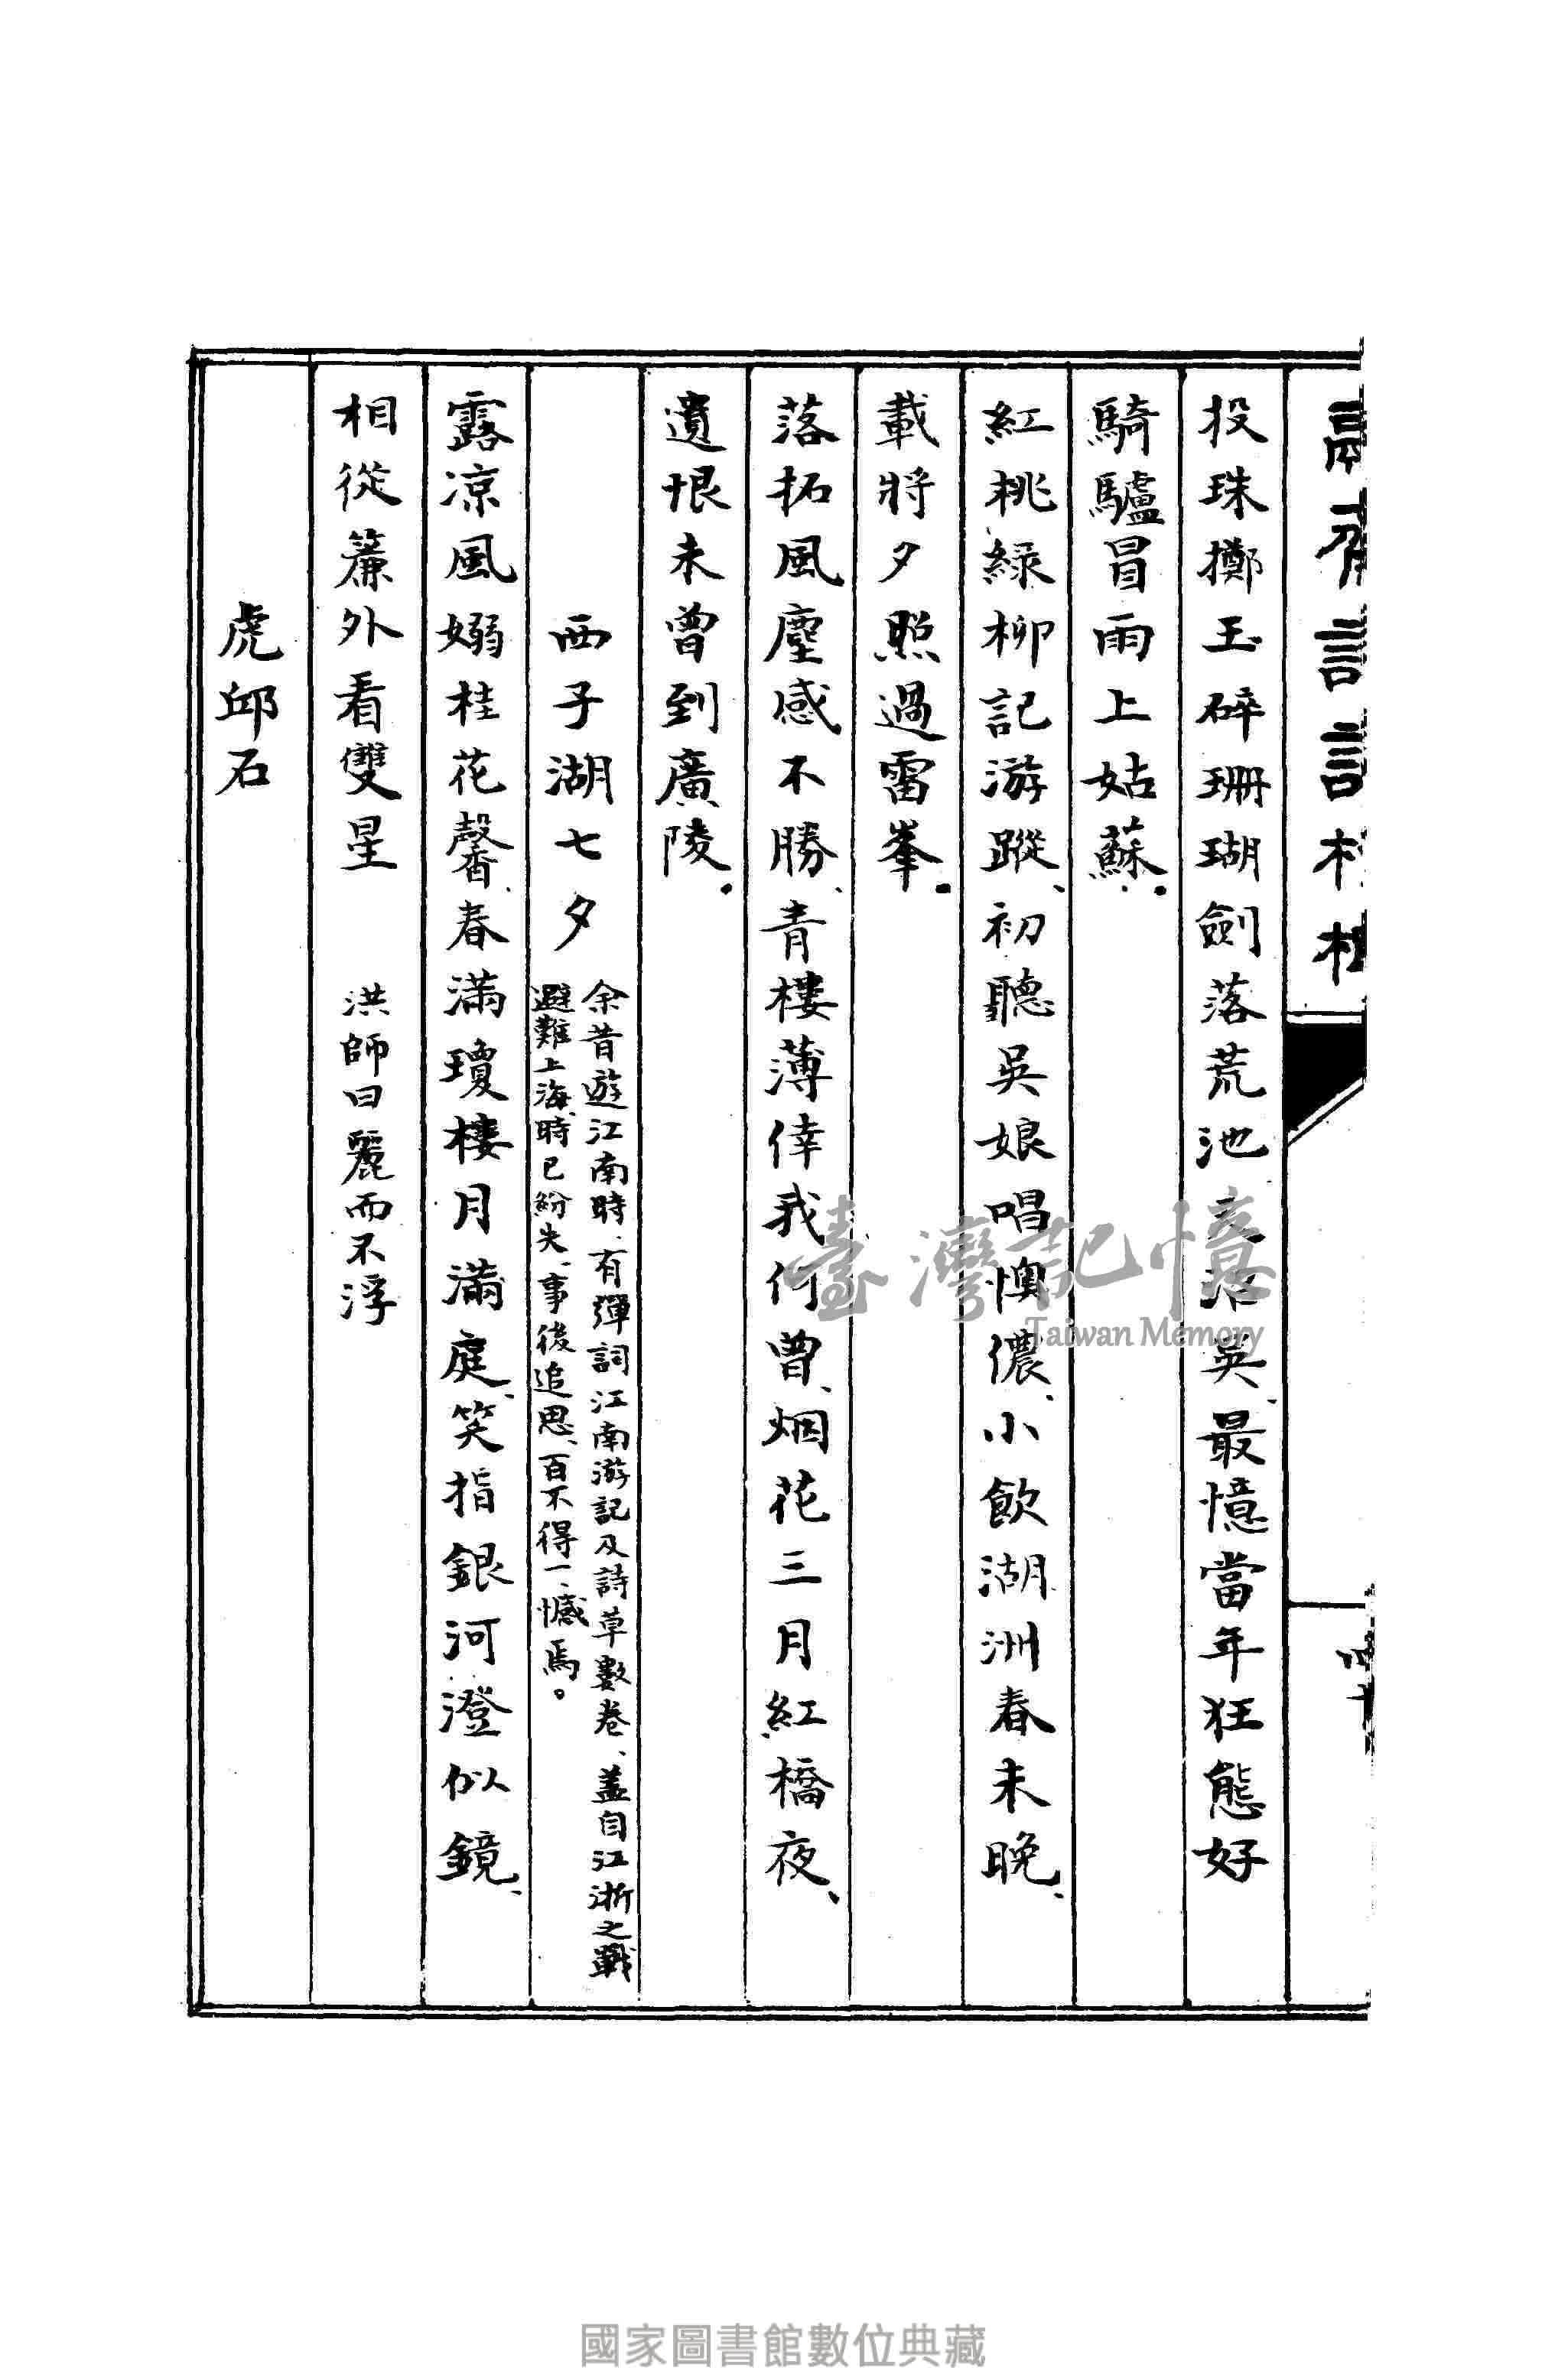 投珠擲玉碎珊瑚劍落荒池沼吳、最憶當年狂態好
騎驢冒雨上姑蘇。
紅桃綠柳記游蹤、初聽吳娘唱懊儂、小飲湖洲春未晚、
載將夕照過雷峯。
落拓風塵感不勝、青樓薄倖我何曾、烟花三月紅橋夜、
遺恨未曾到廣陵。
西子湖七夕
余昔遊江南時、有彈詞江南游記及詩草數卷、蓋自江浙之戰
避難上海、時已紛失、事後追思、百不得一、憾焉。
露涼風嫋桂花馨、春滿瓊樓月滿庭、笑指銀河澄似鏡、
相從簾外看雙星 洪師曰麗而不浮
虎邱石
臺灣記憶
Taiwan Memory
國家圖書館數位典藏